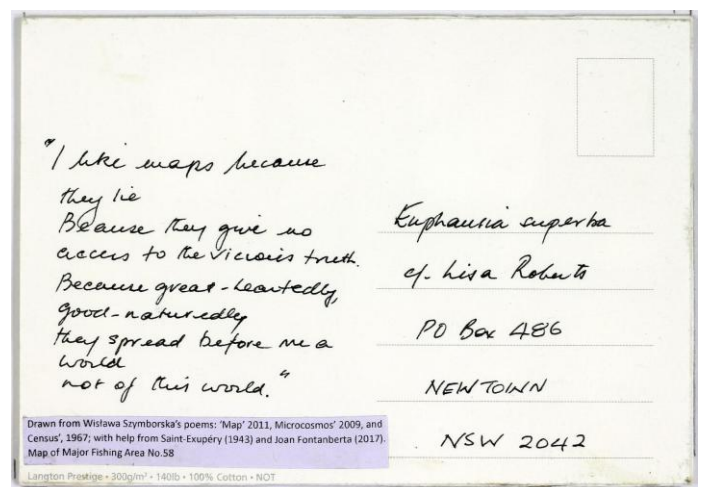 "I like maps because
they lie
Because they give no
access to the vicious truth.
Because great-heartedly,
good-naturedly
they spread before me a
world
not of this world."
Euphausia superba
c/- Lisa Roberts
PO Box 486
NEWTOWN
NSW 2042
Drawn from Wisława Szymborska's poems: 'Map' 2011, Microcosmos' 2009, and
Census', 1967; with help from Saint-Exupéry (1943) and Joan Fontanberta (2017).
Map of Major Fishing Area No.58
Langton Prestige • 300g/m² • 140lb • 100% Cotton • NOT